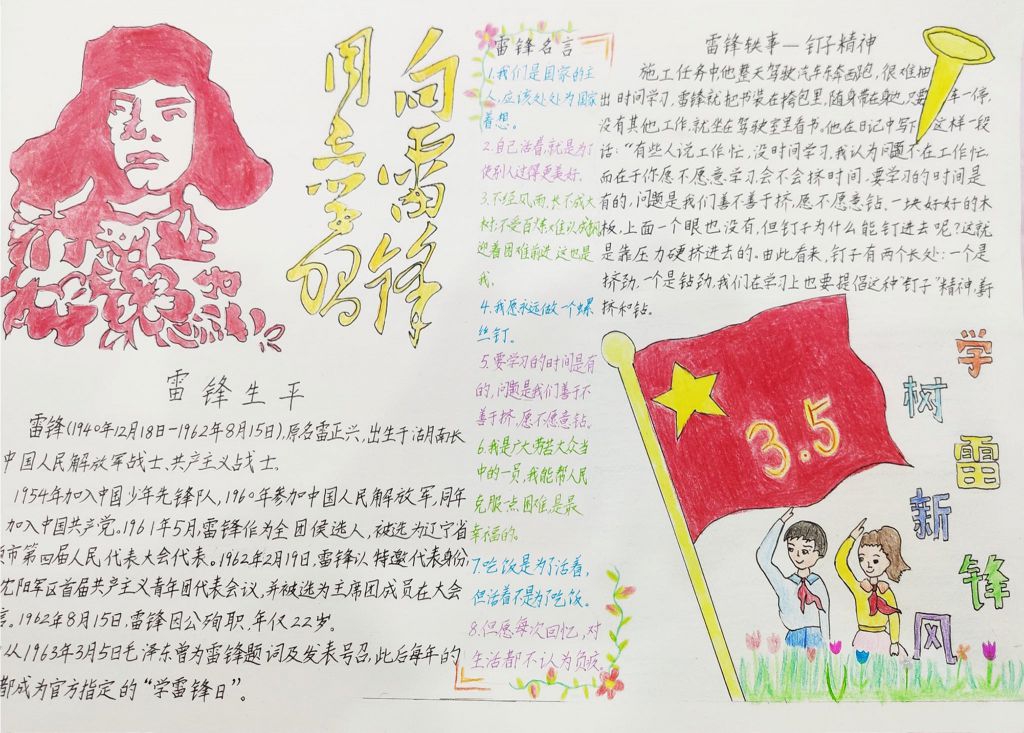 向雷锋
同志学习
雷锋生平
雷锋(1940年12月18日-1962年8月15日),原名雷正兴,出生于湖南长
中国人民解放军战士、共产主义战士。
1954年加入中国少年先锋队,1960年参加中国人民解放军,同年
加入中国共产党。1961年5月,雷锋作为全团候选人,被选为辽宁省
市第四届人民代表大会代表。1962年2月19日,雷锋以特邀代表身份,
沈阳军区首届共产主义青年团代表会议,并被选为主席团成员在大会
言。1962年8月15日,雷锋因公殉职,年仅22岁。
从1963年3月5日毛泽东曾为雷锋题词及发表号召,此后每年的
都成为官方指定的“学雷锋日”。
雷锋名言
1.我们是国家的主
人,应该处处为国家
着想。
2.自己活着,就是为了
使别人过得更美好.
3.不经风雨,长不成大
树;不受百炼,难以成钢
迎着困难前进,这也是
我.
4.我愿永远做一个螺
丝钉。
5.要学习的时间是有
的,问题是我们善于不
善于挤,愿不愿意钻。
6.我是广大劳苦大众当
中的一员,我能帮人民
克服一点困难,是最
幸福的。
7.吃饭是为了活着,
但活着不是为了吃饭。
8.但愿每次回忆,对
生活都不认为负疚。
雷锋轶事—钉子精神
施工任务中他整天驾驶汽车东奔西跑,很难抽
出时间学习,雷锋就把书装在挎包里,随身带在身边,只要车一停,
没有其他工作,就坐在驾驶室里看书。他在日记中写下这样一段
话:“有些人说工作忙,没时间学习,我认为问题不在工作忙,
而在于你愿不愿意学习会不会挤时间.要学习的时间是
有的,问题是我们善不善于挤,愿不愿意钻.一块好好的木
板,上面一个眼也没有,但钉子为什么能钉进去呢?这就
是靠压力硬挤进去的。由此看来,钉子有两个长处:一个是
挤劲,一个是钻劲,我们在学习上也要提倡这种“钉子”精神,善于
挤和钻。
3.5
学雷锋
树新风